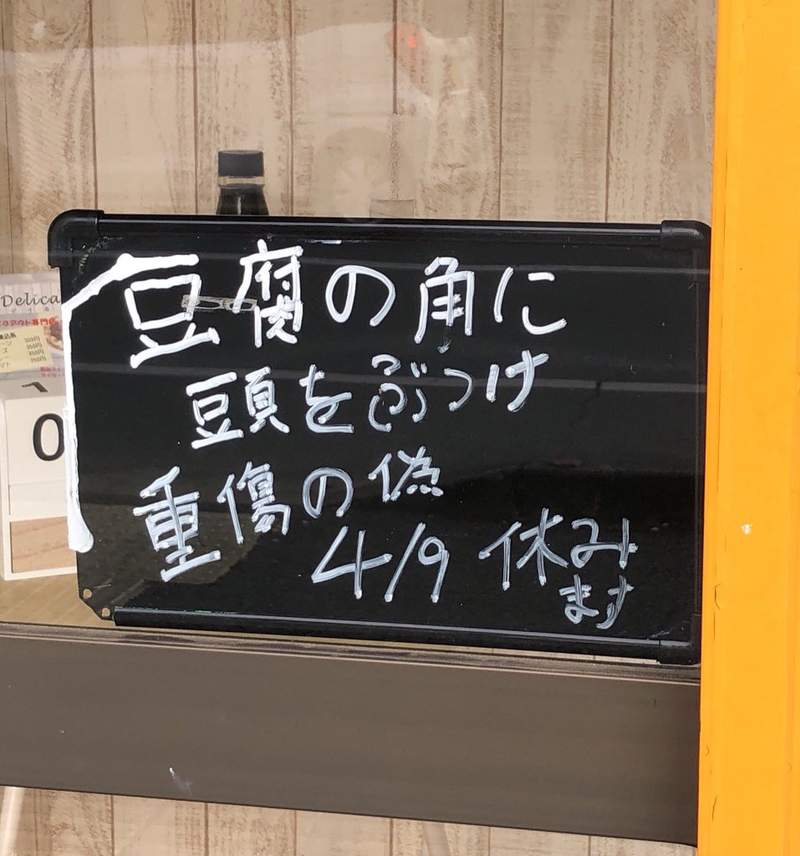 豆腐の角に
頭をぶつけ
重傷の偽
4/9 休み
ます
Delica
0